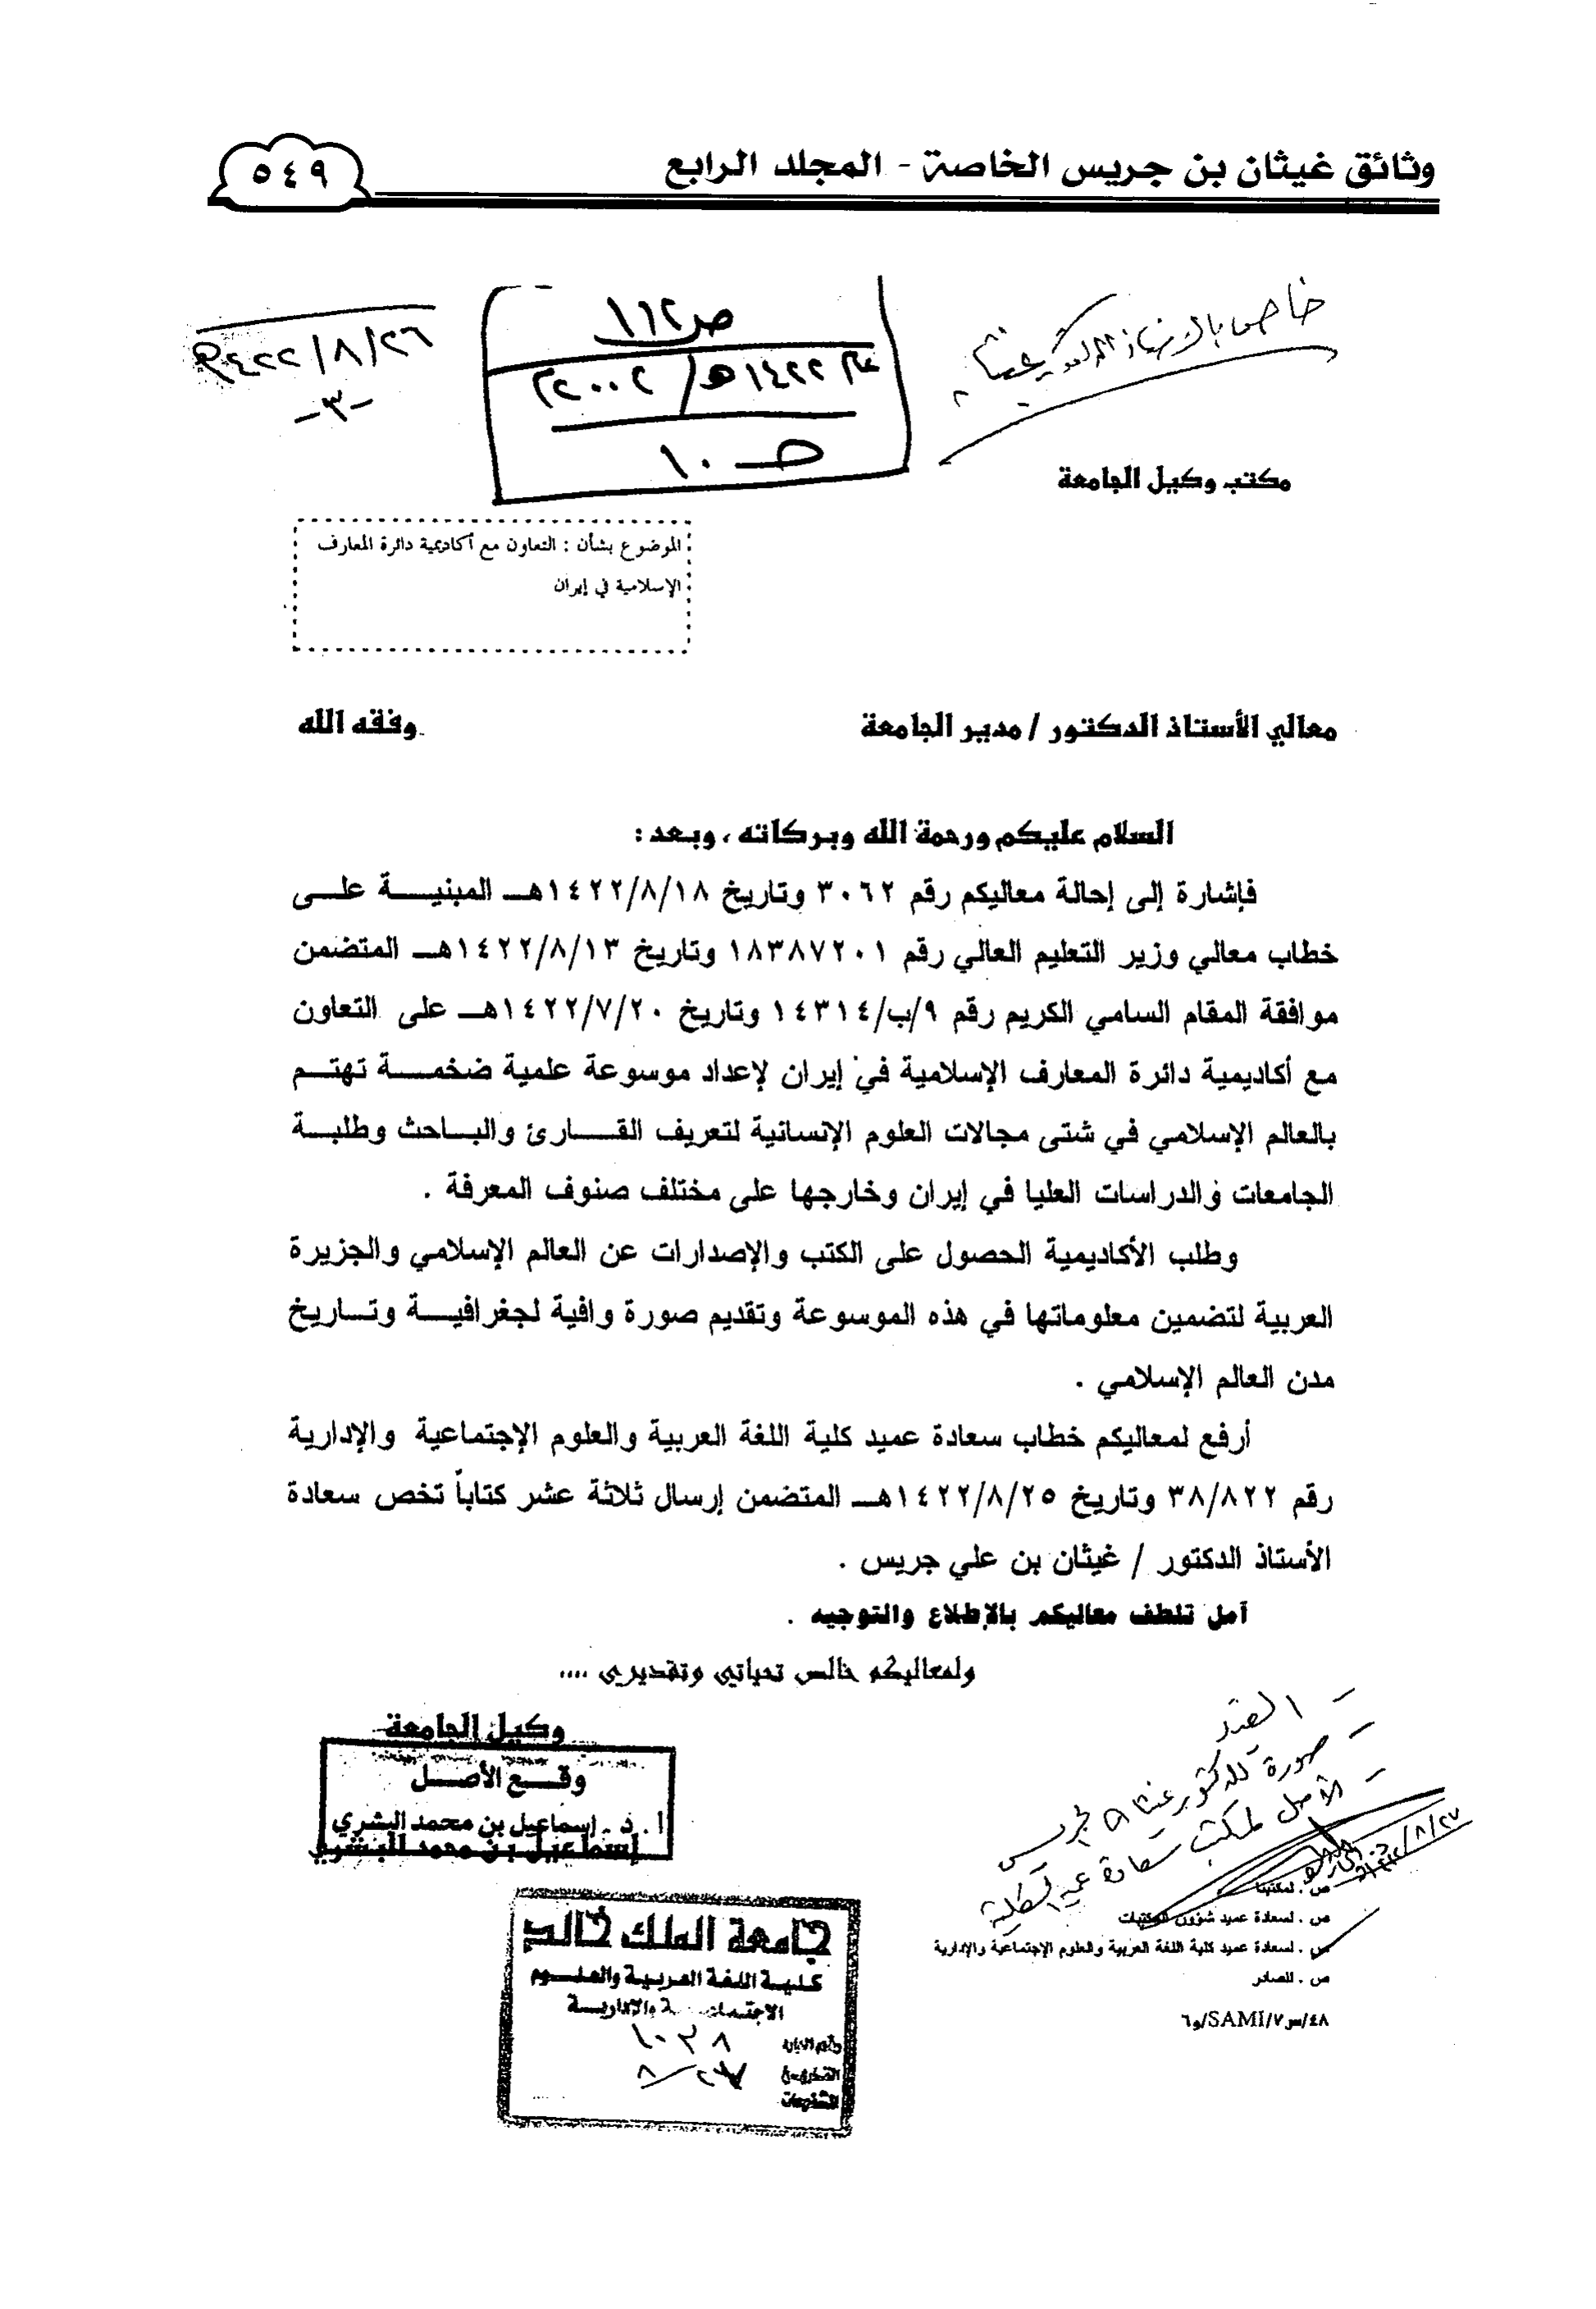 وثائق غيثان بن جريس الخاصة - المجلد الرابع
٥٤٩
خاص بالأستاذ الدكتور غيثان
ص١١٢
عام ١٤٢٢هـ/ ٢٠٠٢م
ص ١٠
١٤٢٢/٨/٢٦
-٣-
مكتب وكيل الجامعة
الموضوع بشأن : التعاون مع أكاديمية دائرة المعارف
الإسلامية في إيران
معالي الأستاذ الدكتور / مدير الجامعة وفقه الله
السلام عليكم ورحمة الله وبركاته ، وبعد :
فإشارة إلى إحالة معاليكم رقم ٣٠٦٢ وتاريخ ١٤٢٢/٨/١٨هـ المبنية على
خطاب معالي وزير التعليم العالي رقم ١٨٣٨٧٢٠١ وتاريخ ١٤٢٢/٨/١٣هـ المتضمن
موافقة المقام السامي الكريم رقم ٩/ب/١٤٣١٤ وتاريخ ١٤٢٢/٧/٢٠هـ على التعاون
مع أكاديمية دائرة المعارف الإسلامية في إيران لإعداد موسوعة علمية ضخمة تهتم
بالعالم الإسلامي في شتى مجالات العلوم الإنسانية لتعريف القارئ والباحث وطلبة
الجامعات والدراسات العليا في إيران وخارجها على مختلف صنوف المعرفة .
وطلب الأكاديمية الحصول على الكتب والإصدارات عن العالم الإسلامي والجزيرة
العربية لتضمين معلوماتها في هذه الموسوعة وتقديم صورة وافية لجغرافية وتاريخ
مدن العالم الإسلامي .
أرفع لمعاليكم خطاب سعادة عميد كلية اللغة العربية والعلوم الإجتماعية والإدارية
رقم ٣٨/٨٢٢ وتاريخ ١٤٢٢/٨/٢٥هـ المتضمن إرسال ثلاثة عشر كتاباً تخص سعادة
الأستاذ الدكتور / غيثان بن علي جريس .
آمل تلطف معاليكم بالإطلاع والتوجيه .
ولمعاليكم خالص تحياتي وتقديري ....
وكيل الجامعة
وقع الأصل
أ . د . إسماعيل بن محمد البشري
إسماعيل بن محمد البشري
- القيد
- صورة للدكتور غيثان جريس
- الأصل لمكتب سعادة عميد الكلية
٨/٢٧
ص . لمكتبنا
ص . لسعادة عميد شؤون المكتبات
ص . لسعادة عميد كلية اللغة العربية والعلوم الإجتماعية والإدارية
ص . للصادر
٤٨/س٧/SAMI/و٦
جامعة الملك خالد
كلية اللغة العربية والعلوم
الاجتماعية والادارية
١٠٣٨
التاريخ ٨/٢٧
المشفوعات